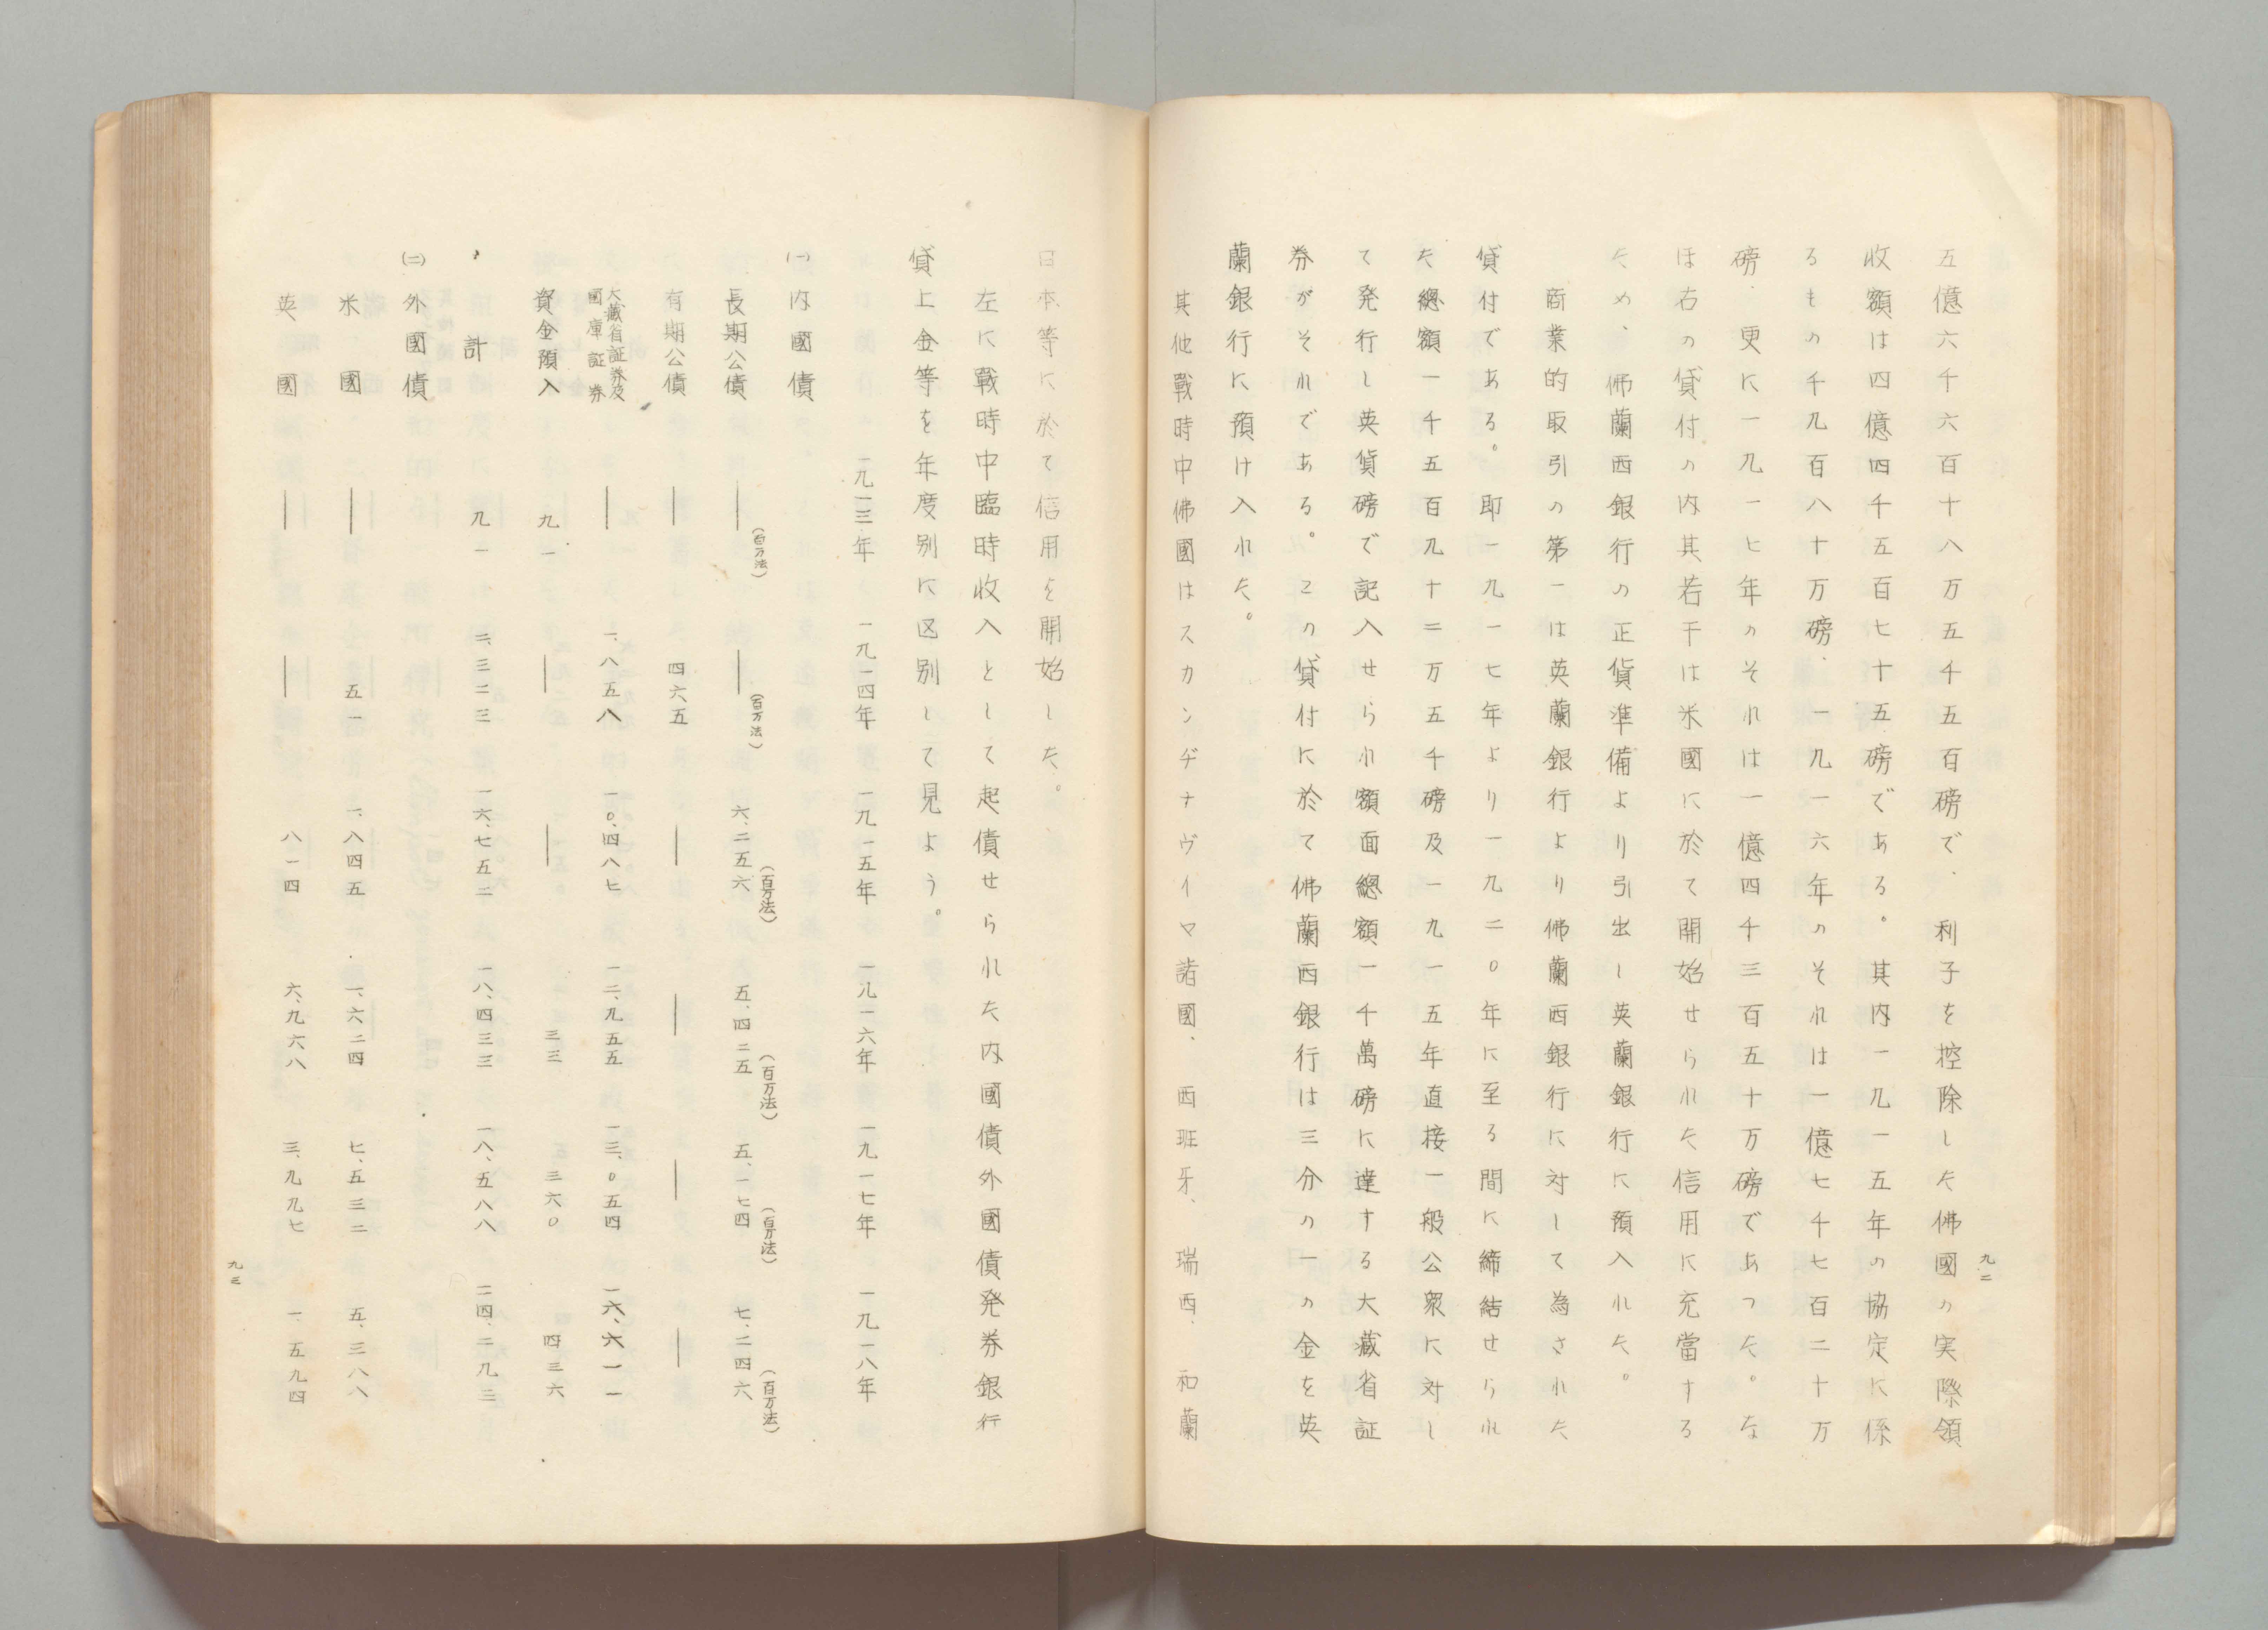 五億六千六百十八万五千五百磅で、利子を控除した佛國の実際領
收額は四億四千五百七十五磅である。其内一九一五年の協定に係
るもの千九百八十万磅、一九一六年のそれは一億七千七百二十万
磅、更に一九一七年のそれは一億四千三百五十万磅であつた。な
ほ右の貸付の内其若干は米國に於て開始せられた信用に充當する
ため、佛蘭西銀行の正貨準備より引出し英蘭銀行に預入れた。
商業的取引の第一は英蘭銀行より佛蘭西銀行に対して為された
貸付である。即一九一七年より一九二〇年に至る間に締結せられ
た總額一千五百九十二万五千磅及一九一五年直接一般公衆に対し
て発行し英貨磅で記入せられ額面總額一千萬磅に達する大藏省証
券がそれである。この貸付に於て佛蘭西銀行は三分の一の金を英
蘭銀行に預け入れた。
其他戰時中佛國はスカンヂナヴイヤ諸國、西班牙、瑞西、和蘭
九二
日本等に於て信用を開始した。
左に戰時中臨時收入として起債せられた内國債外國債発券銀行
貸上金等を年度別に区別して見よう。
一九一三年 一九一四年 一九一五年 一九一六年 一九一七年 一九一八年
(百万法) (百万法) (百万法) (百万法) (百万法) (百万法)
(一)内國債
長期公債 — — 六、二五六 五、四二五 五、一七四 七、二四六
有期公債 — 四六五 — — — —
大藏省証券及國庫証券 — 一、八五八 一〇、四八七 一二、九五五 一三、〇五四 一六、六一一
資金預入 九一 — — 三三 三六〇 四三六
計 九一 二、三二三 一六、七五二 一八、四三三 一八、五八八 二四、二九三
(二)外國債
米國 — 五一 一、八四五 一、六二四 七、五三二 五、三八八
英國 — — 八一四 六、九六八 三、九九七 一、五九四
九三